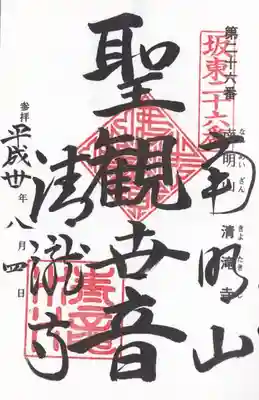 第二十六番
坂東二十六番
南明山
なめいざん
南明山
清滝寺
きよたきじ
聖観世音
清瀧寺
参拝
平成廿年八月四日